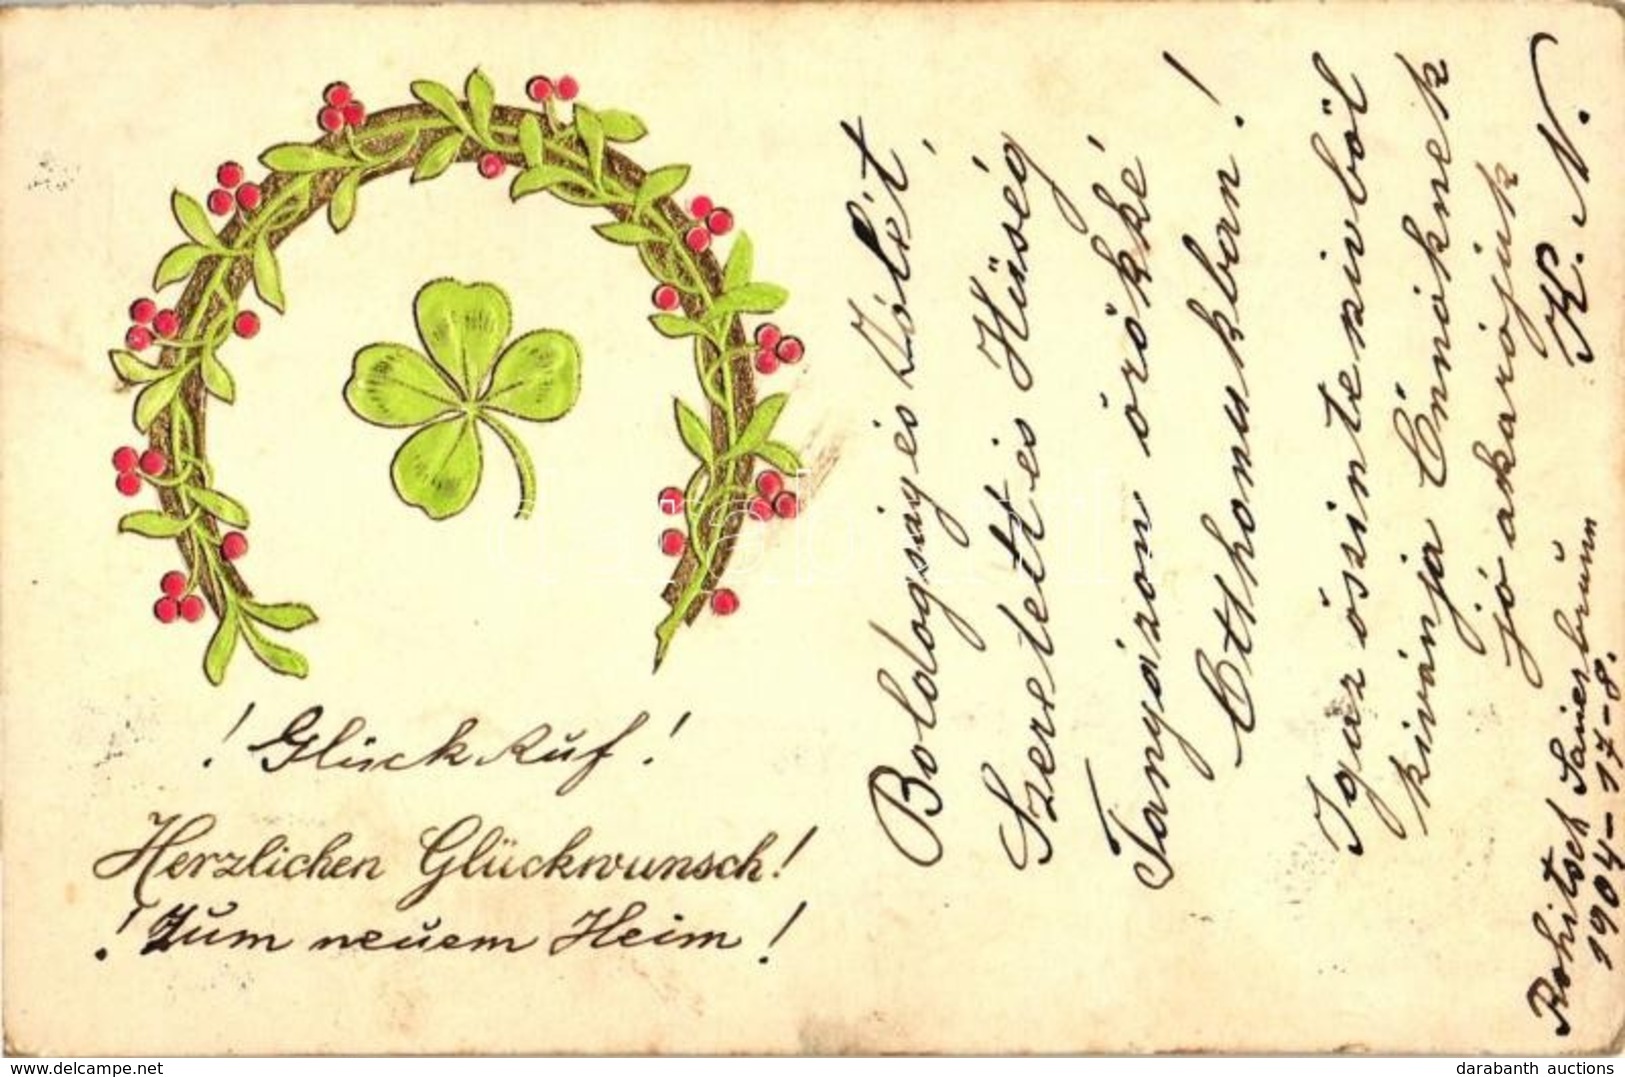 ! Glück Auf !
Herzlichen Glückwunsch!
! Zum neuem Heim !
Bologság és Jólét,
Szeretett és Hüség
Tanyázon örökké
Otthonukban!
Igaz öszinte szivböl
kivánja Önnöknek
jó akarójuk
K. N.
Rohitsch Sauerbrunn
1904-17-8.
darabanth
www.delcampe.net
darabanth auctions